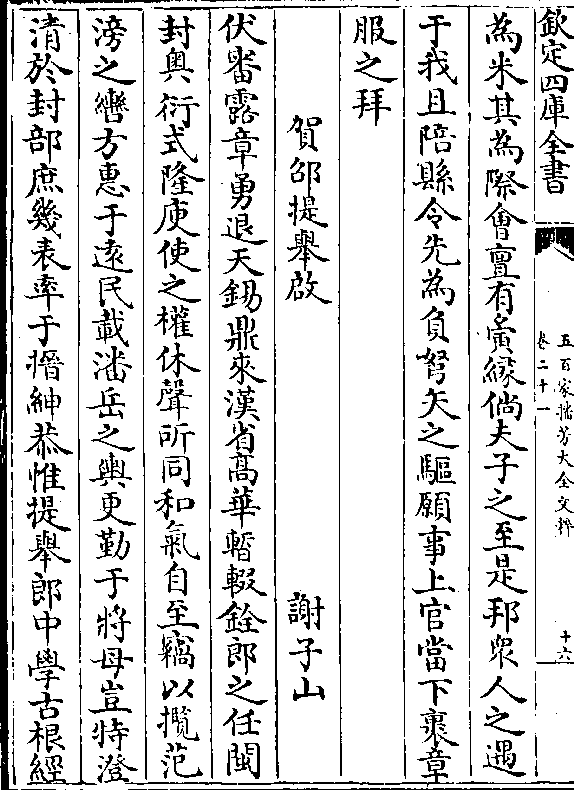 欽定四庫全書
五百家播芳大全文粹
卷二十一
十六
為米其為際會亶有夤緣倘夫子之至是邦衆人之遇
于我且陪縣令先為負弩矢之驅願事上官當下褭章
服之拜
賀邵提舉啟
謝子山
伏審露章勇退天錫鼎來漢省髙華暫輟銓郎之任閩
封奥衍式隆庾使之權休聲所同和氣自至竊以攬范
滂之轡方惠于逺民載潘岳之輿更勤于將母豈特澄
清於封部庶幾表率于搢紳恭惟提舉郎中學古根經